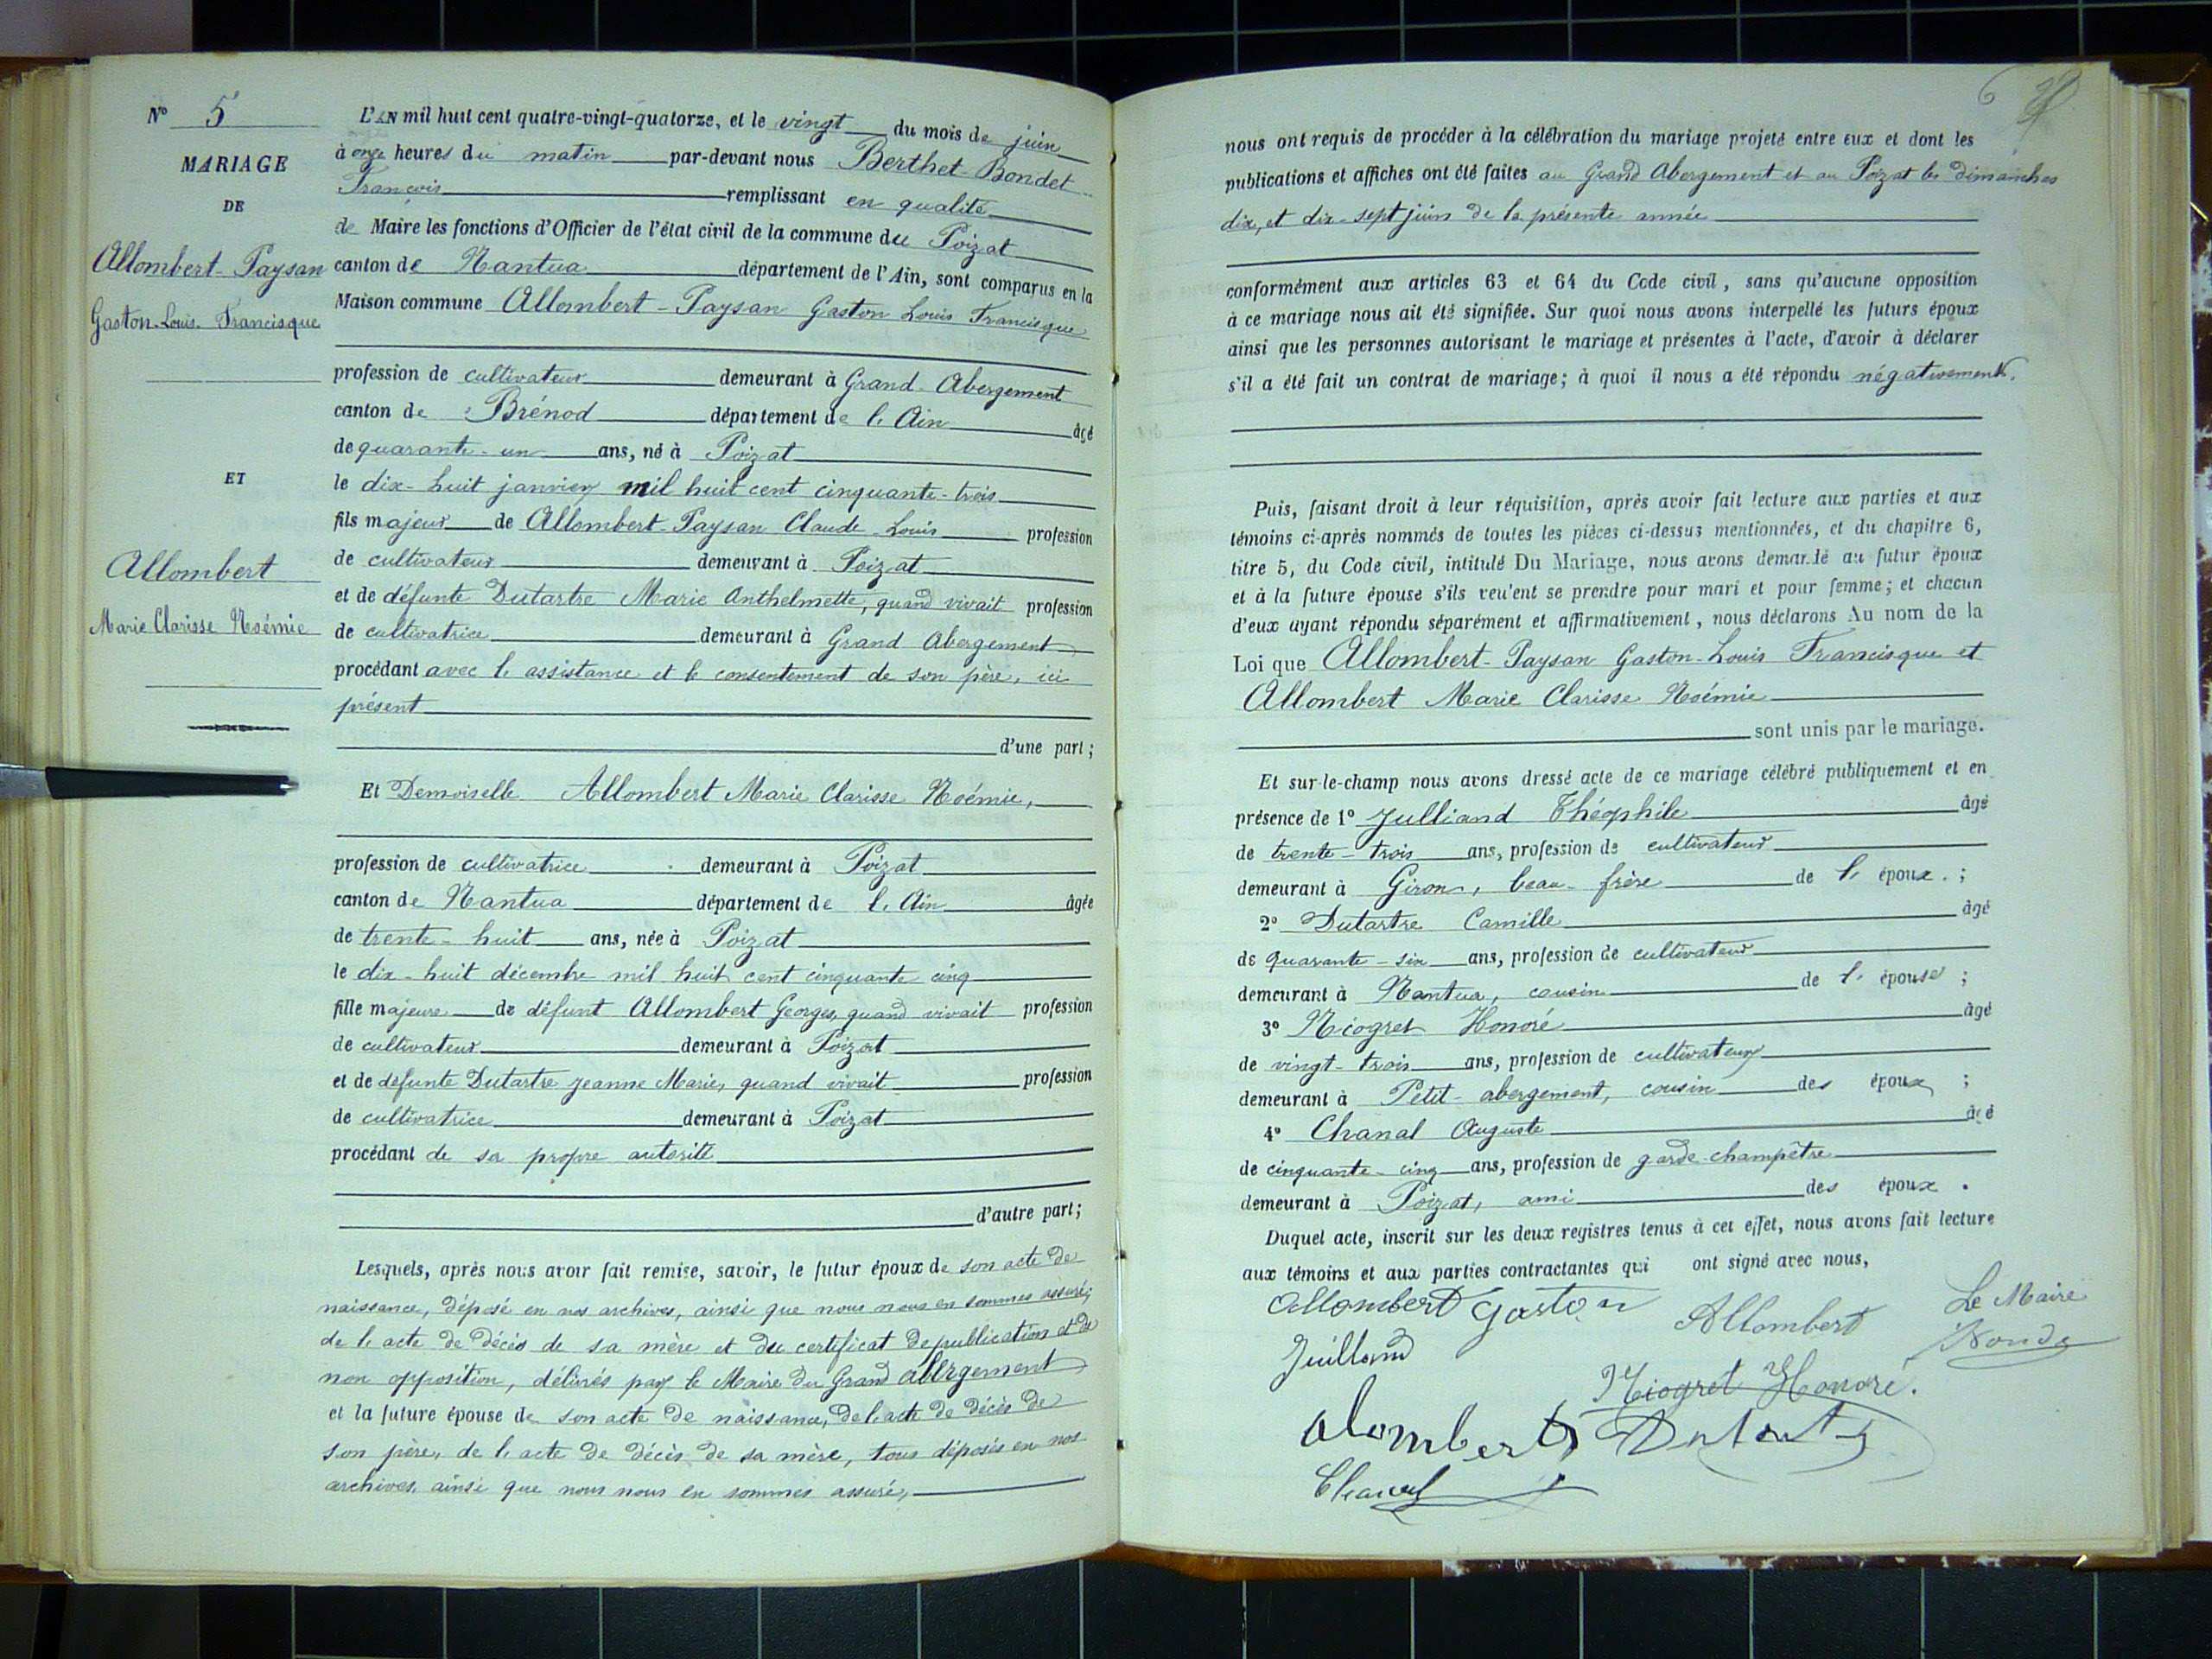 N° 5
MARIAGE
DE
Allombert-Paysan
Gaston-Louis-Francisque
ET
Allombert
Marie Clarisse Noémie
L'AN mil huit cent quatre-vingt-quatorze, et le vingt du mois de juin
à onze heures du matin par-devant nous Berthet-Bondet
François remplissant en qualité
de Maire les fonctions d'Officier de l'état civil de la commune du Poizat
canton de Nantua département de l'Ain, sont comparus en la
Maison commune Allombert-Paysan Gaston Louis Francisque
profession de cultivateur demeurant à Grand-Abergement
canton de Brénod département de l'Ain âgé
de quarante-un ans, né à Poizat
le dix-huit janvier mil huit cent cinquante-trois
fils majeur de Allombert-Paysan Claude-Louis profession
de cultivateur demeurant à Poizat
et de défunte Dutartre Marie Anthelmette, quand vivait profession
de cultivatrice demeurant à Grand Abergement
procédant avec l'assistance et le consentement de son père, ici
présent
d'une part ;
Et Demoiselle Allombert Marie Clarisse Noémie,
profession de cultivatrice demeurant à Poizat
canton de Nantua département de l'Ain âgée
de trente-huit ans, née à Poizat
le dix-huit décembre mil huit cent cinquante cinq
fille majeure de défunt Allombert Georges, quand vivait profession
de cultivateur demeurant à Poizat
et de défunte Dutartre Jeanne Marie, quand vivait profession
de cultivatrice demeurant à Poizat
procédant de sa propre autorité
d'autre part ;
Lesquels, après nous avoir fait remise, savoir, le futur époux de son acte de
naissance, déposé en nos archives, ainsi que nous nous en sommes assuré,
de l'acte de décès de sa mère et du certificat de publication et de
non opposition, délivrés par le Maire du Grand abergement
et la future épouse de son acte de naissance, de l'acte de décès de
son père, de l'acte de décès de sa mère, tous déposés en nos
archives, ainsi que nous nous en sommes assuré,
6
nous ont requis de procéder à la célébration du mariage projeté entre eux et dont les
publications et affiches ont été faites au Grand Abergement et au Poizat les dimanches
dix, et dix-sept juin de la présente année
conformément aux articles 63 et 64 du Code civil, sans qu'aucune opposition
à ce mariage nous ait été signifiée. Sur quoi nous avons interpellé les futurs époux
ainsi que les personnes autorisant le mariage et présentes à l'acte, d'avoir à déclarer
s'il a été fait un contrat de mariage ; à quoi il nous a été répondu négativement.
Puis, faisant droit à leur réquisition, après avoir fait lecture aux parties et aux
témoins ci-après nommés de toutes les pièces ci-dessus mentionnées, et du chapitre 6,
titre 5, du Code civil, intitulé Du Mariage, nous avons demandé au futur époux
et à la future épouse s'ils veulent se prendre pour mari et pour femme ; et chacun
d'eux ayant répondu séparément et affirmativement, nous déclarons Au nom de la
Loi que Allombert-Paysan Gaston-Louis Francisque et
Allombert Marie Clarisse Noémie
sont unis par le mariage.
Et sur-le-champ nous avons dressé acte de ce mariage célébré publiquement et en
présence de 1° Julliand Théophile âgé
de trente-trois ans, profession de cultivateur
demeurant à Giron, beau-frère de l'époux. ;
2° Dutartre Camille âgé
de quarante-six ans, profession de cultivateur
demeurant à Nantua, cousin de l'épouse ;
3° Niogret Honoré âgé
de vingt-trois ans, profession de cultivateur
demeurant à Petit-abergement, cousin des époux ;
4° Chanal Auguste âgé
de cinquante-cinq ans, profession de garde-champêtre
demeurant à Poizat, ami des époux .
Duquel acte, inscrit sur les deux registres tenus à cet effet, nous avons fait lecture
aux témoins et aux parties contractantes qui ont signé avec nous,
Allombert Gaston Allombert Le Maire
Juilland
Niogret Honoré.
alombert Dutartre
Chanal